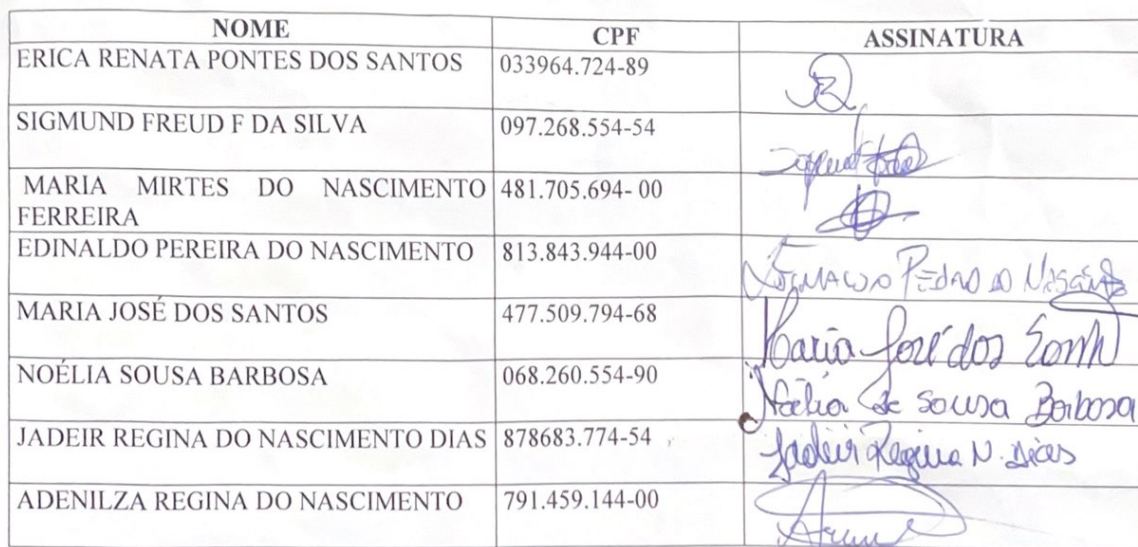 NOME CPF ASSINATURA
ERICA RENATA PONTES DOS SANTOS 033964.724-89
SIGMUND FREUD F DA SILVA 097.268.554-54
MARIA MIRTES DO NASCIMENTO 481.705.694- 00
FERREIRA
EDINALDO PEREIRA DO NASCIMENTO 813.843.944-00
MARIA JOSÉ DOS SANTOS 477.509.794-68 Maria José dos
NOÉLIA SOUSA BARBOSA 068.260.554-90 Noélia de Sousa Barbosa
JADEIR REGINA DO NASCIMENTO DIAS 878683.774-54 Jadeir Regina N. Dias
ADENILZA REGINA DO NASCIMENTO 791.459.144-00